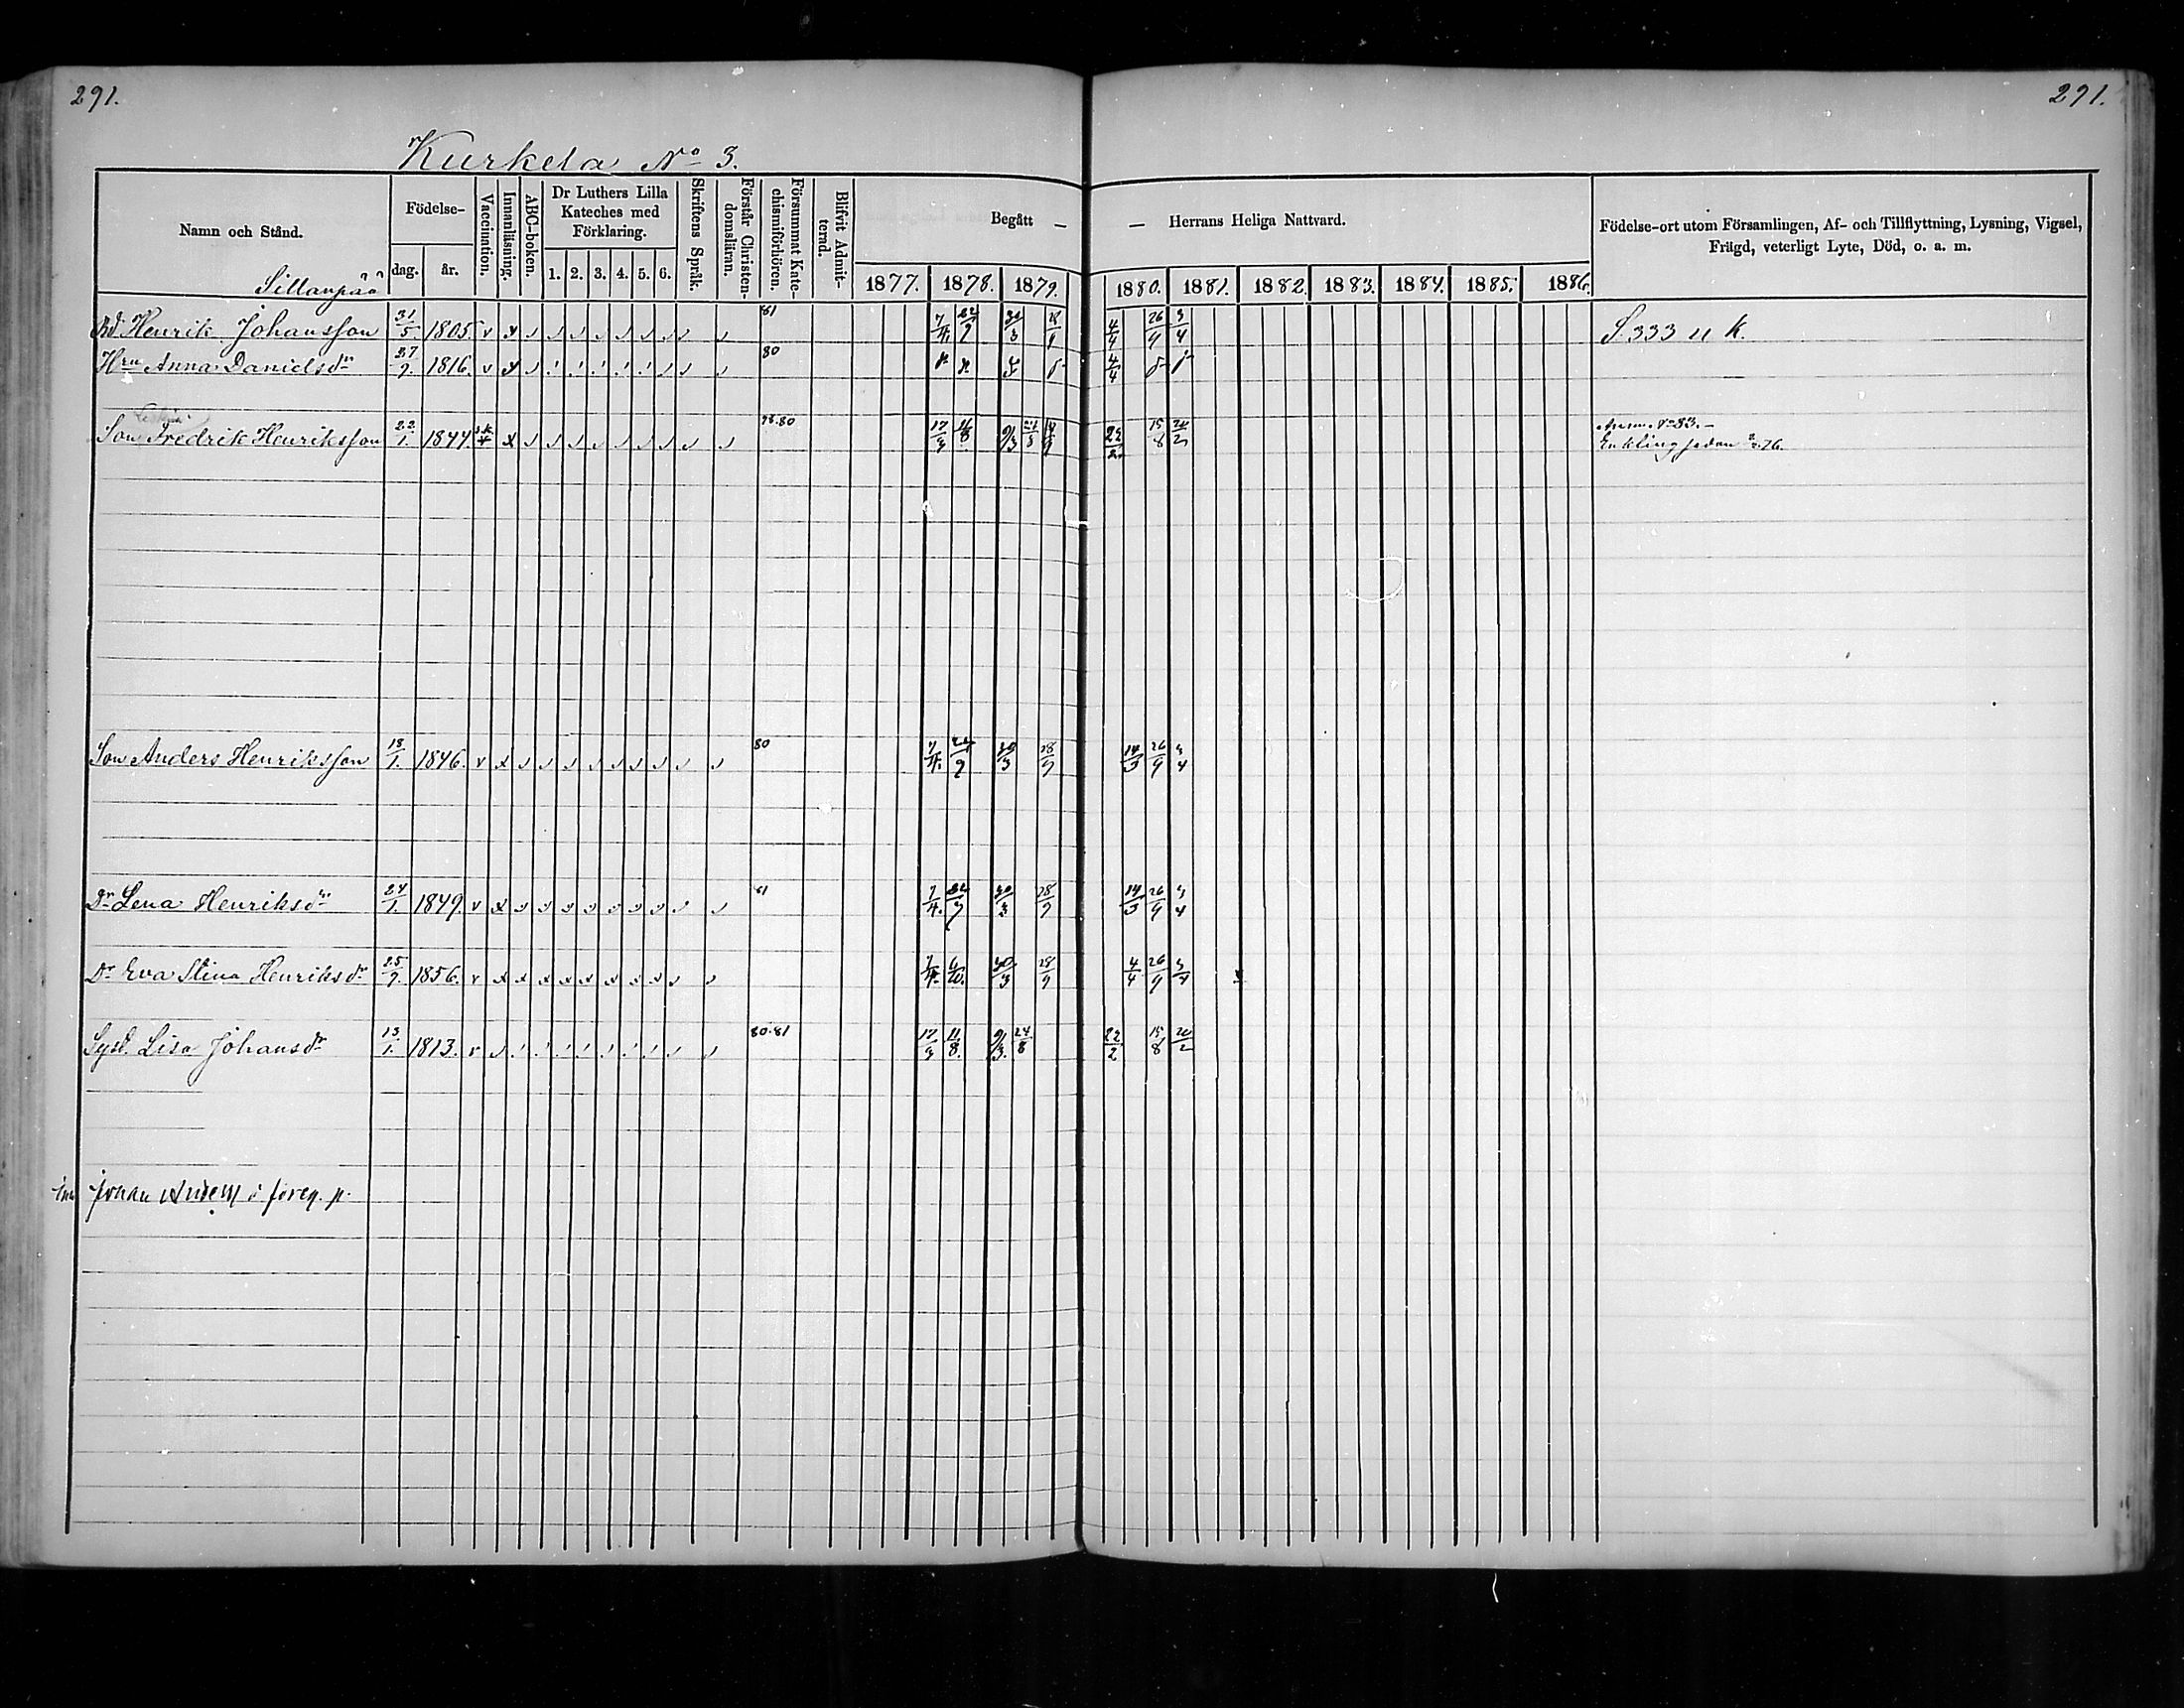 291. 291.
Kurkela No 3.
Namn och Stånd. Födelse- Vaccination. Innanläsning. ABC-boken. Dr Luthers Lilla Kateches med Förklaring. Skriftens Språk. Förstår Christen-domsläran. Försummat Kate-chismiförhören. Blifvit Admit-terad. Begått — — Herrans Heliga Nattvard. Födelse-ort utom Församlingen, Af- och Tillflyttning, Lysning, Vigsel, Frägd, veterligt Lyte, Död, o. a. m.
dag. år. 1. 2. 3. 4. 5. 6. 1877. 1878. 1879. 1880. 1881. 1882. 1883. 1884. 1885. 1886.
Sillanpää
Bd Henrik Johansson 31/5 1805. 81 7/4 22/9 30/3 4/4 26/9 3/4 S. 333 u k.
Hru Anna Danielsdr 27/9 1816. 80 4/4
Son Fredrik Henriksson 22/1. 1844. 78.80 17/3 11/8 9/3 24/8 22/2 15/8 20/2
Enkling sedan 76.
Son Anders Henriksson 18/1. 1846. 80 7/4. 22/9 30/3 28/9 14/3 26/9 3/4
Dr Lena Henriksdr 24/1. 1849. 81 7/4. 22/9 30/3 28/9 14/3 26/9 3/4
Dr Eva Stina Henriksdr 25/9. 1856. 7/4. 6/10. 30/3 28/9 4/4 26/9 3/4
Syst. Lisa Johansdr 13/1. 1813. 80.81 17/3 11/8. 9/3. 24/8 22/2 15/8 20/2
Johan i föreg. p.